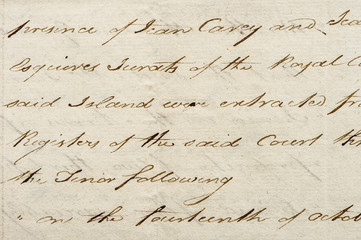 presence of Jean Carey and Jea
Esquires Jurats of the Royal C
said Island were extracted fr
Registers of the said Court th
the Tenor following
" on the fourteenth of octo